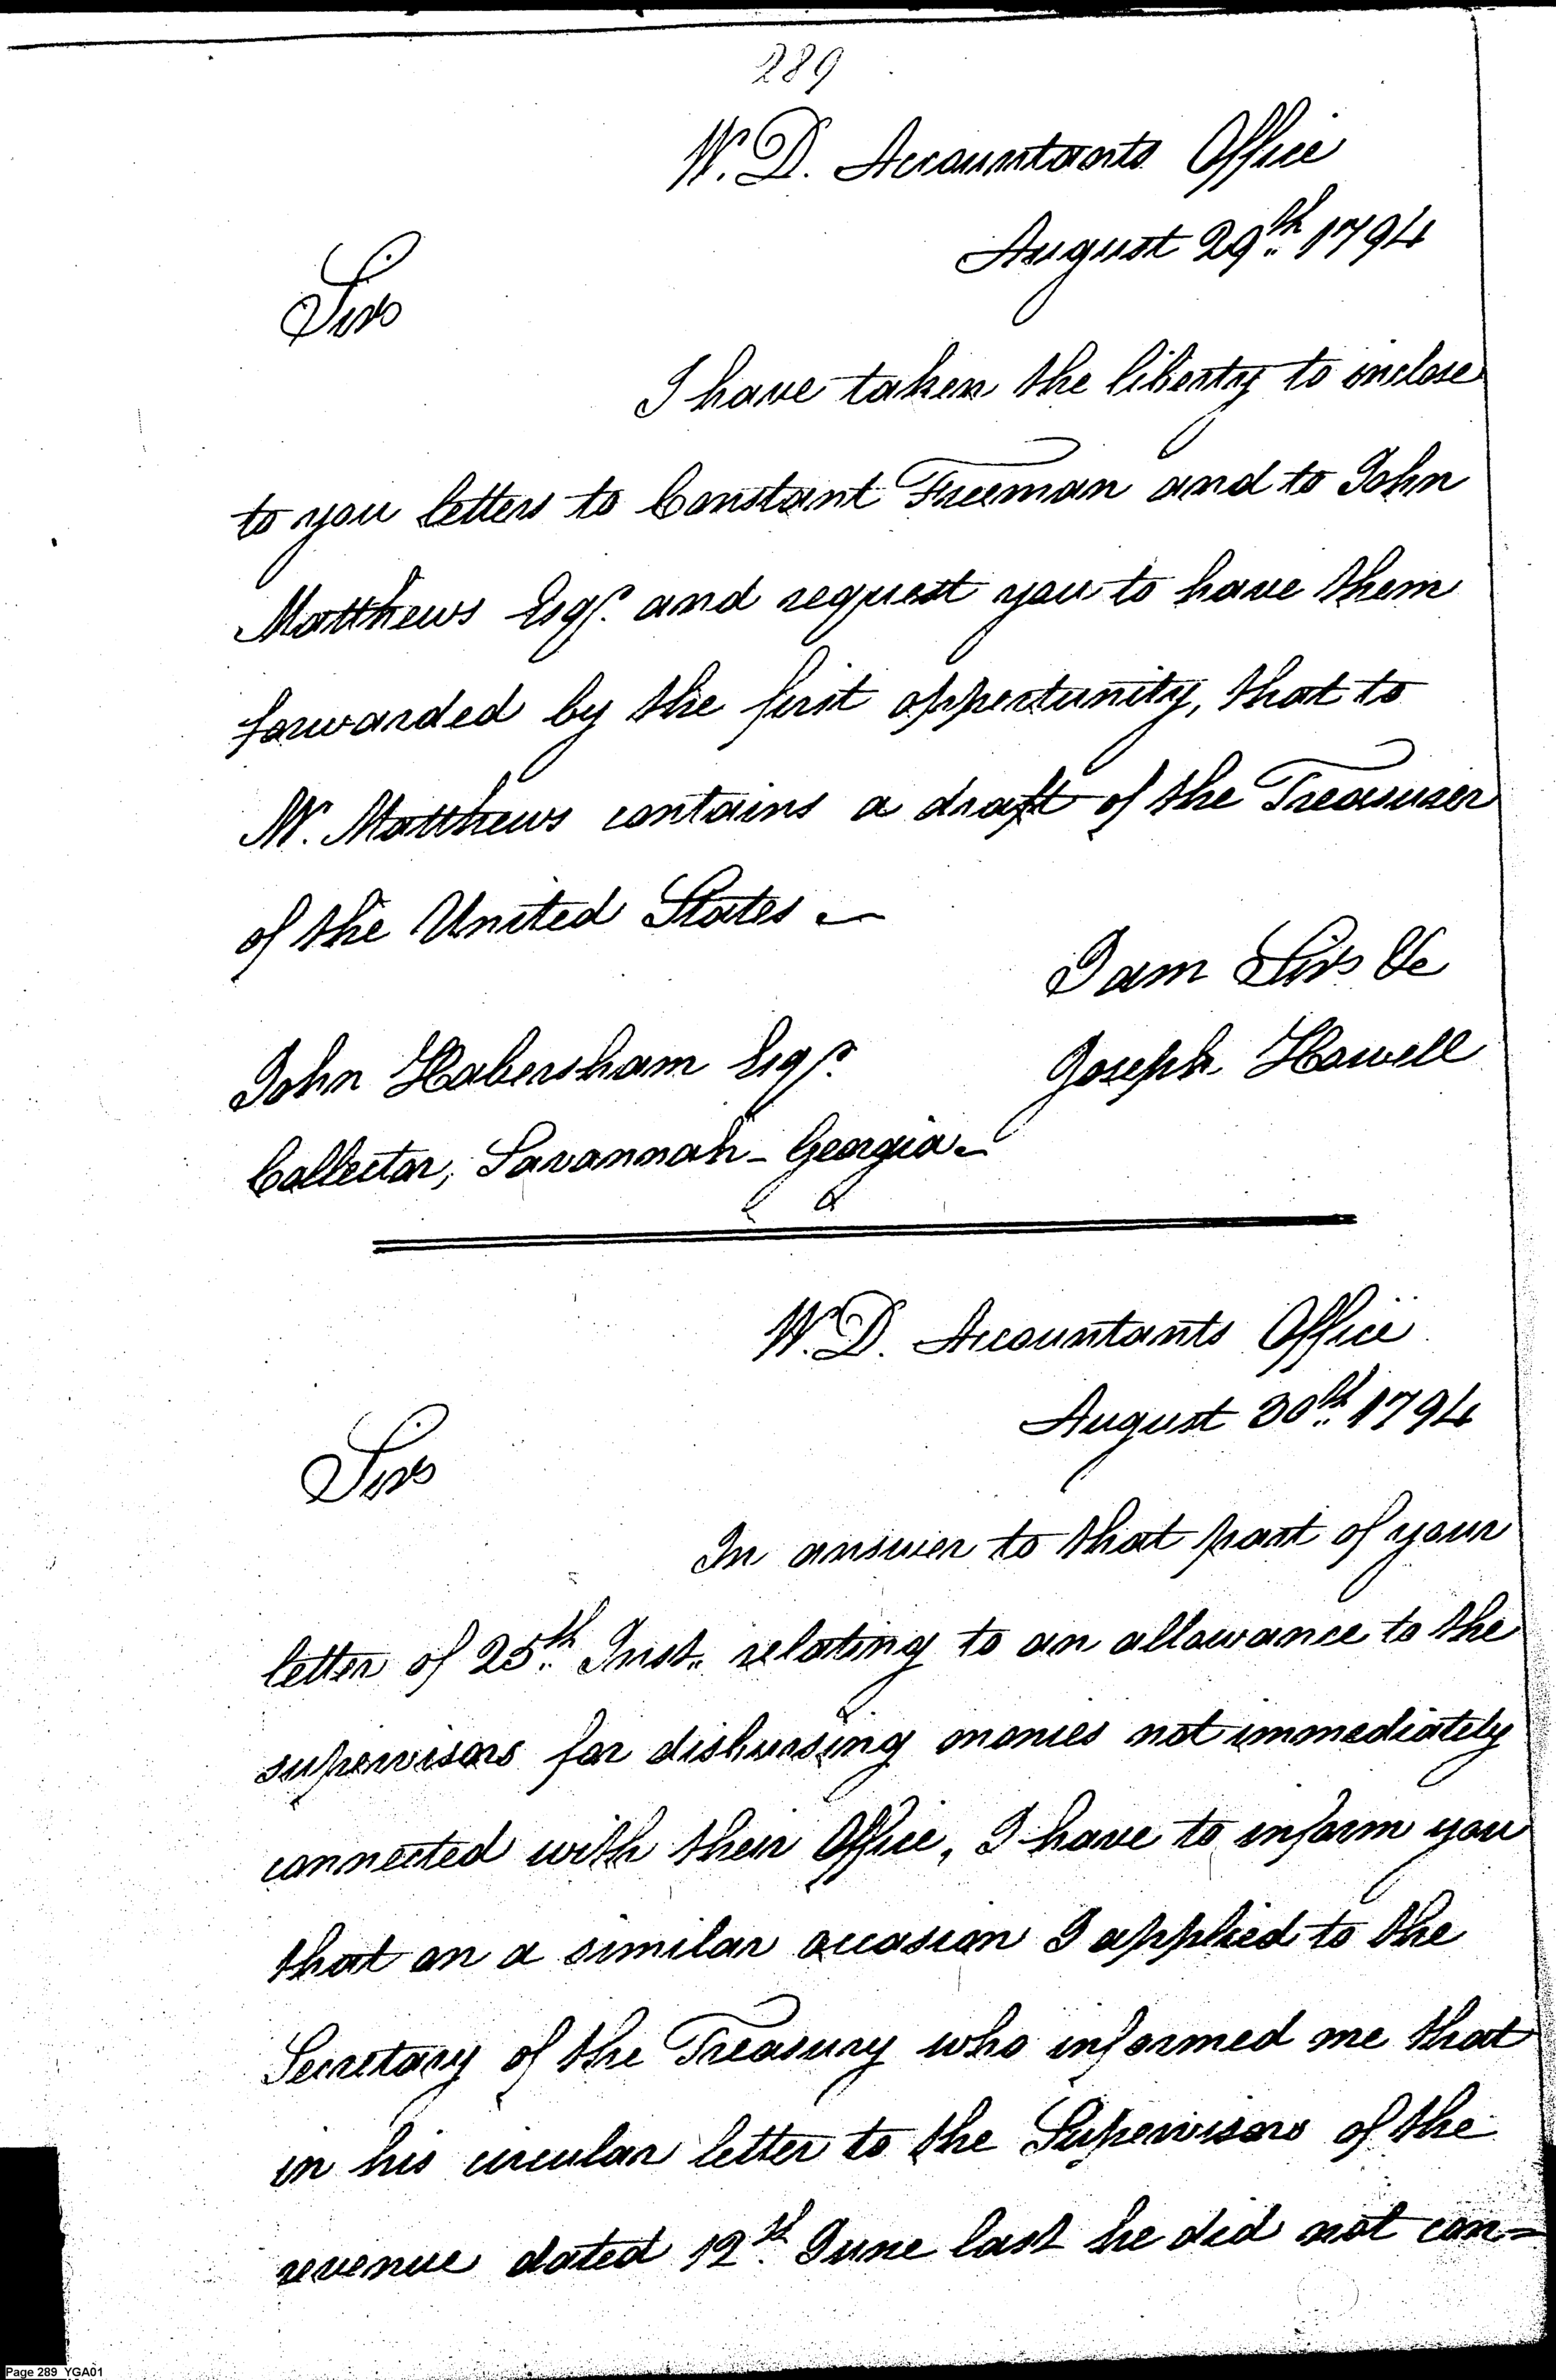 289
W. D. Accountants Office
August 29th 1794
Sir
I have taken the liberty to inclose
to you letters to Constant Freeman and to John
Matthews Esqr. and request you to have them
forwarded by the first opportunity, that to
Mr. Matthews contains a draft of the Treasurer
of the United States —
I am Sir &c
John Habersham Esqr. Joseph Howell
Collector, Savannah - Georgia -
W. D. Accountants Office
August 30th 1794
Sir
In answer to that part of your
letter of 25th Inst. relating to an allowance to the
supervisors for disbursing monies not immediately
connected with their Office, I have to inform you
that on a similar occasion I applied to the
Secretary of the Treasury who informed me that
in his circular letter to the Supervisors of the
revenue dated 12th June last he did not con=
Page 289 YGA01